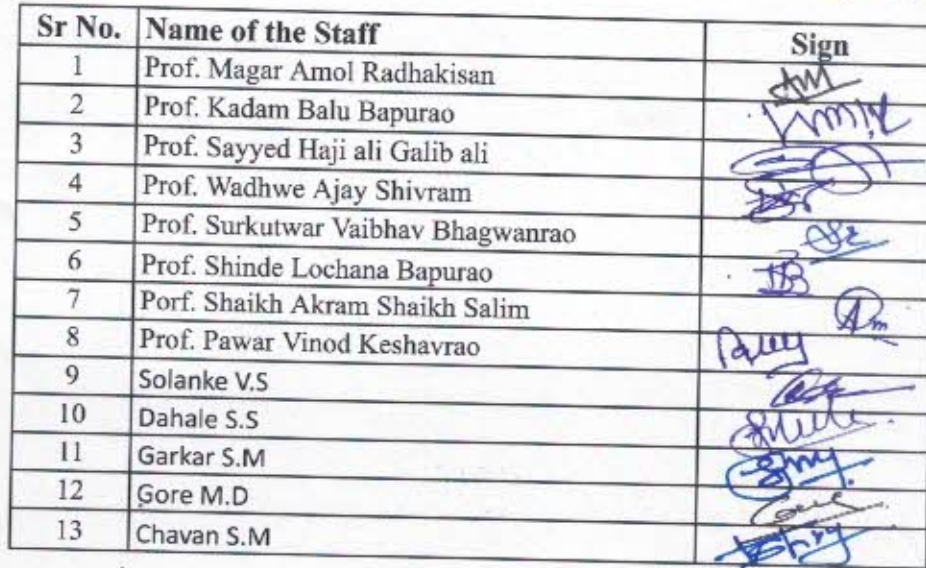 Sr No. Name of the Staff Sign
1 Prof. Magar Amol Radhakisan AM
2 Prof. Kadam Balu Bapurao
3 Prof. Sayyed Haji ali Galib ali
4 Prof. Wadhwe Ajay Shivram
5 Prof. Surkutwar Vaibhav Bhagwanrao
6 Prof. Shinde Lochana Bapurao
7 Porf. Shaikh Akram Shaikh Salim
8 Prof. Pawar Vinod Keshavrao
9 Solanke V.S
10 Dahale S.S
11 Garkar S.M
12 Gore M.D
13 Chavan S.M